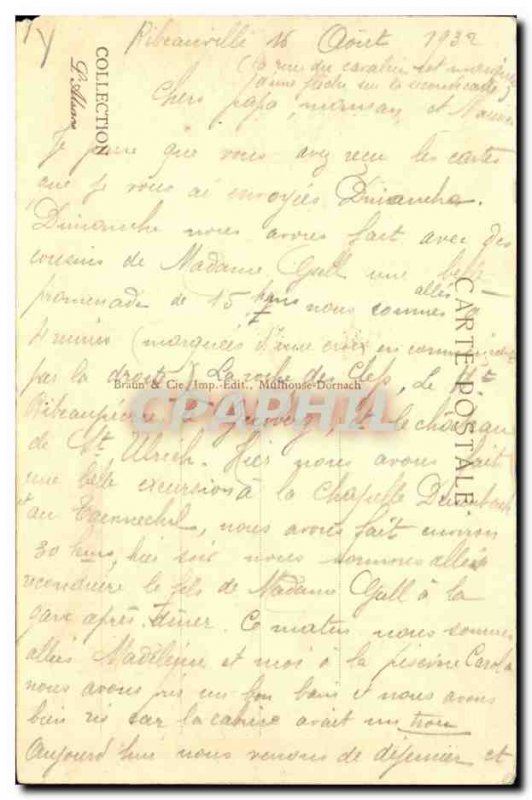 COLLECTION
L'Alsace
CARTE POSTALE
Braun & Cie, Imp.-Edit., Mulhouse-Dornach
CPAPHIL
Ribeauvillé 16 Août 1932
(la rue du cavalier est marquée
jaune sur la seconde carte)
Chers papa, maman, et
Je pense que vous avez reçu les cartes
que je vous ai envoyées Dimanche.
Dimanche nous avons fait avec des
cousins de Madame Gull une belle
promenade de 15 kms nous sommes allés à
4 ruines (marquées d'une croix en commençant
par la droite) La roche des Clefs, Le Ht
Ribeaupierre, le et le château
de St Ulrich. Hier nous avons fait
une belle excursion à la Chapelle Dusenbach
et au Taennechel, nous avons fait environ
30 kms, hier soir nous sommes allés
reconduire le fils de Madame Gull à la
gare après diner. Ce matin nous sommes
allés Madeleine et moi à la piscine Carola
nous avons pris un bon bain et nous avons
bien ri car la cabine avait un trou
Aujourd'hui nous venons de déjeuner et